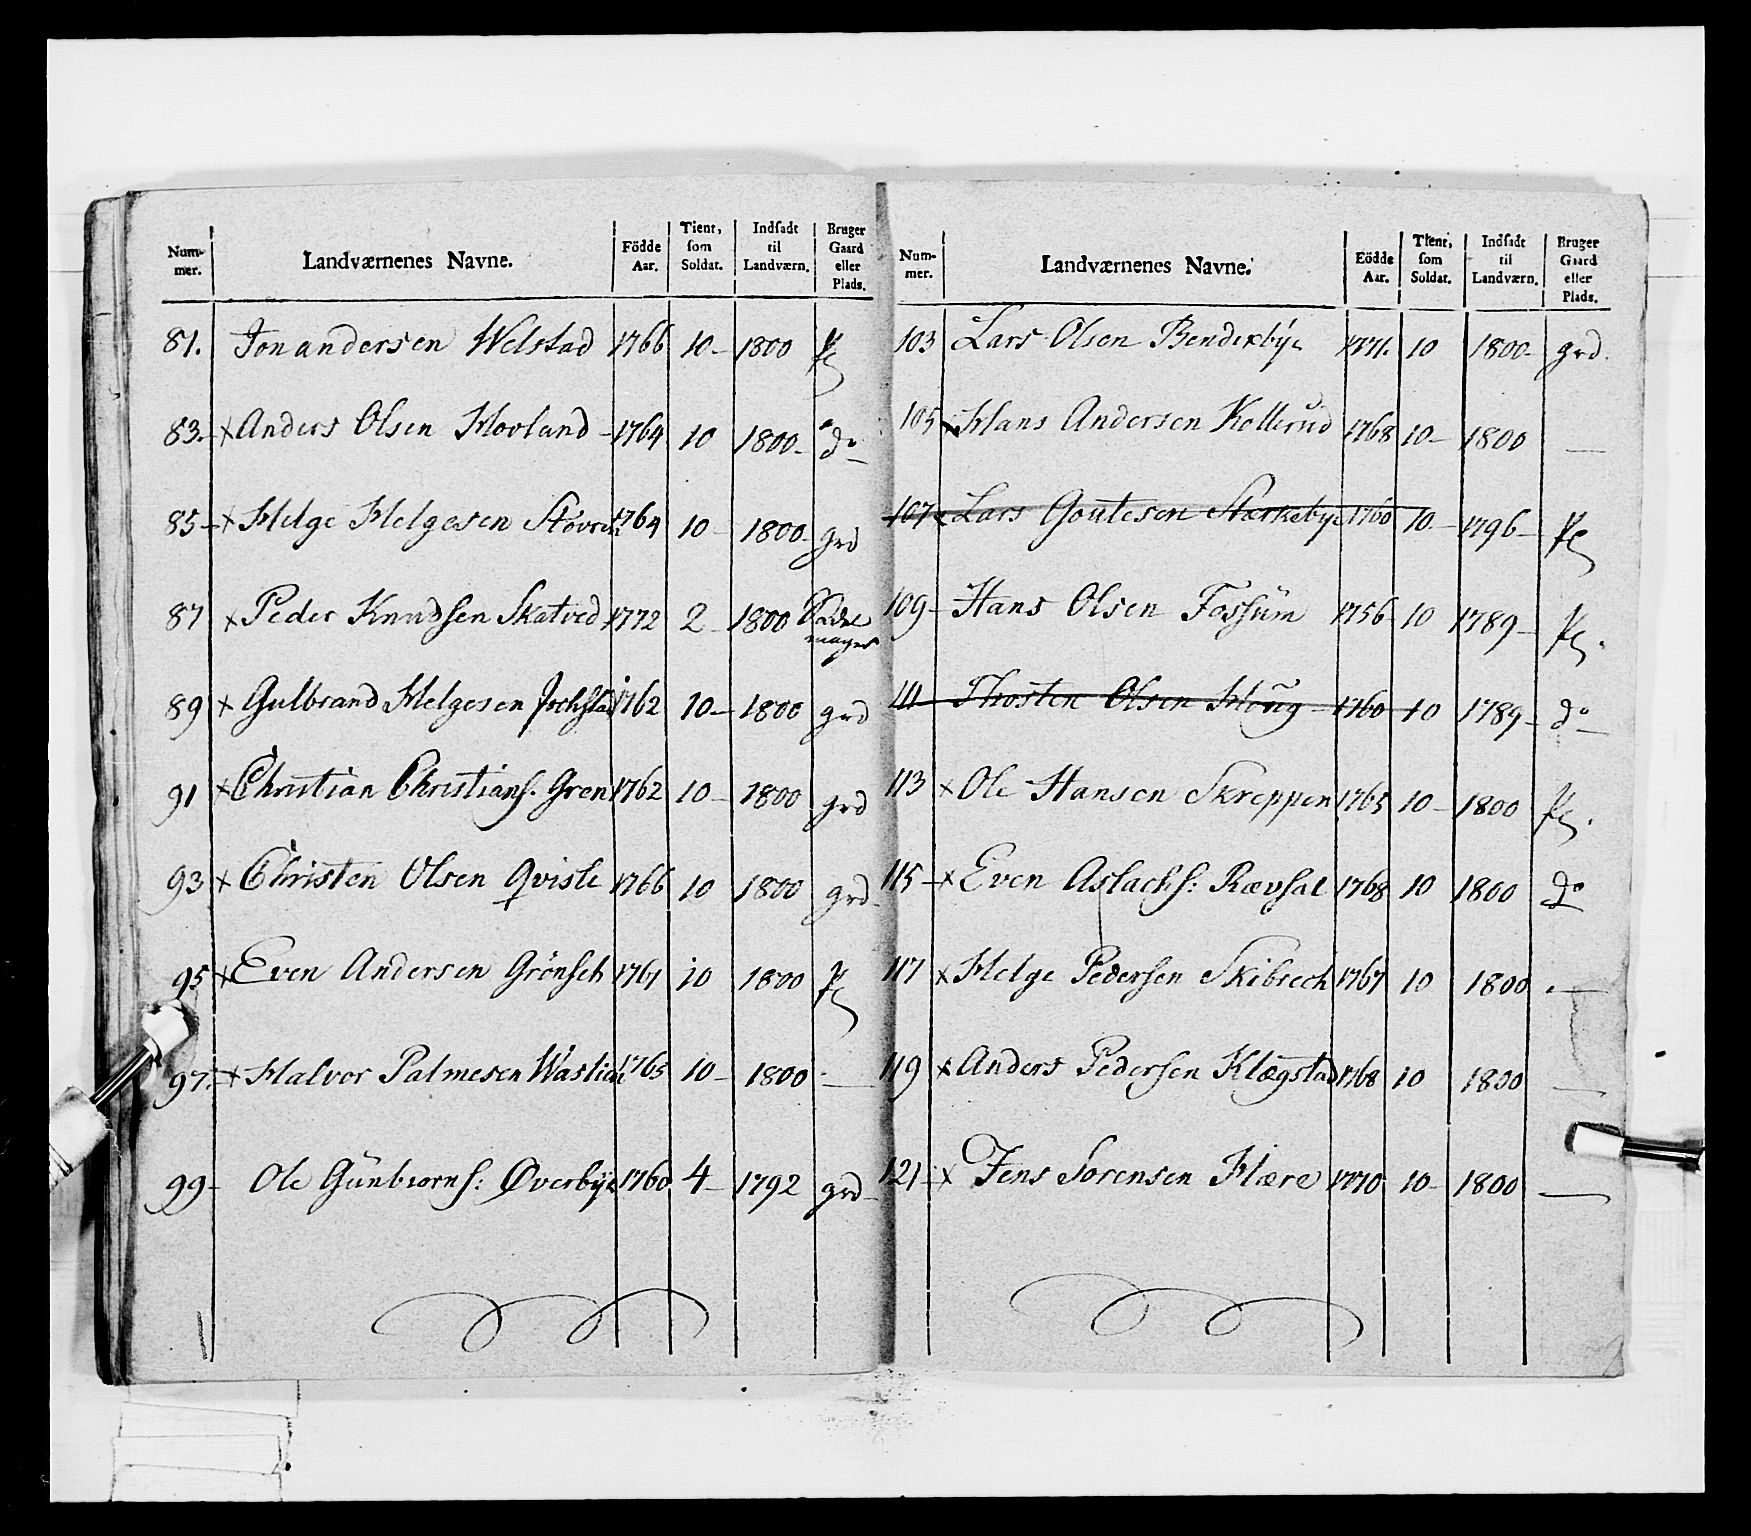 Num-mer. Landværnenes Navne. Födde Aar. Tient, som Soldat. Indsadt til Landværn. Bruger Gaard eller Plads.
81. Jon andersen Welstad 1766 10- 1800 Pl
83.- x Anders Olsen Hovland - 1764 10 1800- do
85- x Helge Helgesen 1764 10- 1800- grd
87 x Peder Knudsen Skatved 1772 2- 1800 Sadelmager
89 x Gulbrand Helgesen 1762 10- 1800 grd
91 x Christian Christians. Gren 1762 10- 1800 grd
93 x Christen Olsen Qvisle 1766 10 1800 grd-
95 x Even Andersen Grönseh 1761 10 1800 Pl
97.- x Halvor Palmesen 1765 10- 1800 . —
99- Ole Günbiørns: Øverbÿe 1760 4- 1792 grd-
Num-mer. Landværnenes Navne. Födde Aar. Tient, som Soldat. Indsadt til Landværn. Bruger Gaard eller Plads.
103 Lars Olsen Benderbÿe 1771. 10 1800- grd.
105 x Hans Andersen Kollerud 1768 10- 1800 —
107 x Lars Goutesen Stærkebye 1760 10- 1796- Pl
109- Hans Olsen Fossüm 1756 10 1789- Pl.
111- Thosten Olsen Houg - 1760 10 1789- do
113 x Ole Hansen Skreppen 1765 10- 1800 Pl.
115- x Even Aslachs: Rævsal 1768 10 1800 do
117 x Helge Pedersen Skibrech 1767 10 1800 . —
119 x Anders Pedersen Klægstad 1768 10 1800 —
121- x Jens Sorensen Hære 1770 10- 1800 —